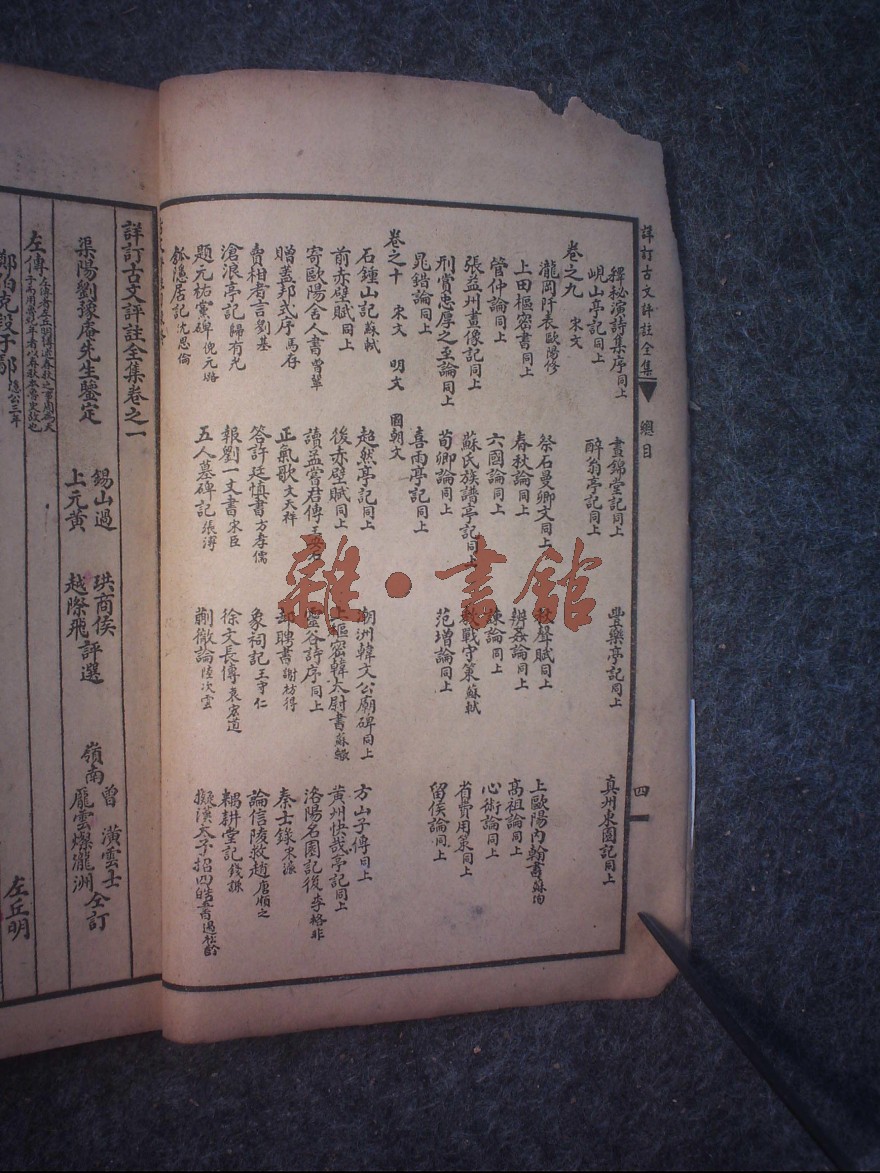 詳訂古文評註全集 總目 四
釋秘演詩集序同上 晝錦堂記同上 豐樂亭記同上 真州東園記同上
峴山亭記同上 醉翁亭記同上
卷之九 宋文
瀧岡阡表歐陽修 祭石曼卿文同上 秋聲賦同上 上歐陽內翰書蘇洵
上田樞密書同上 春秋論同上 辨姦論同上 高祖論同上
管仲論同上 六國論同上 諫論同上 心術論同上
張益州畫像記同上 蘇氏族譜亭記同上 教戰守策蘇軾 省費用策同上
刑賞忠厚之至論同上 荀卿論同上 范增論同上 留侯論同上
晁錯論同上 喜雨亭記同上
卷之十 宋文 明文 國朝文
石鍾山記蘇軾 超然亭記同上 潮洲韓文公廟碑同上 方山子傳同上
前赤壁賦同上 後赤壁賦同上 上樞密韓太尉書蘇轍 黃州快哉亭記同上
寄歐陽舍人書曾鞏 讀孟嘗君傳王安石 靈谷詩序同上 洛陽名園記後李格非
贈蓋邦式序馬存 正氣歌文天祥 却聘書謝枋得 秦士錄宋濂
賣柑者言劉基 答許廷慎書方孝儒 象祠記王守仁 論信陵救趙唐順之
滄浪亭記歸有光 報劉一丈書宋臣 徐文長傳袁宏道 耦耕堂記錢謙
題元祐黨碑倪元璐 五人墓碑記張溥 蒯徹論陸次雲 擬漢太子招四皓書過松齡
瓠隱居記沈思倫
詳訂古文評註全集卷之一
渠陽劉豫庵先生鑒定 錫山過 珙商侯 上元黃 越際飛 評選 嶺南 曾 潢雲士 龐雲燦瀧洲 仝訂
左傳 左丘明
鄭伯克段于鄢 隱公三年
雜·書館